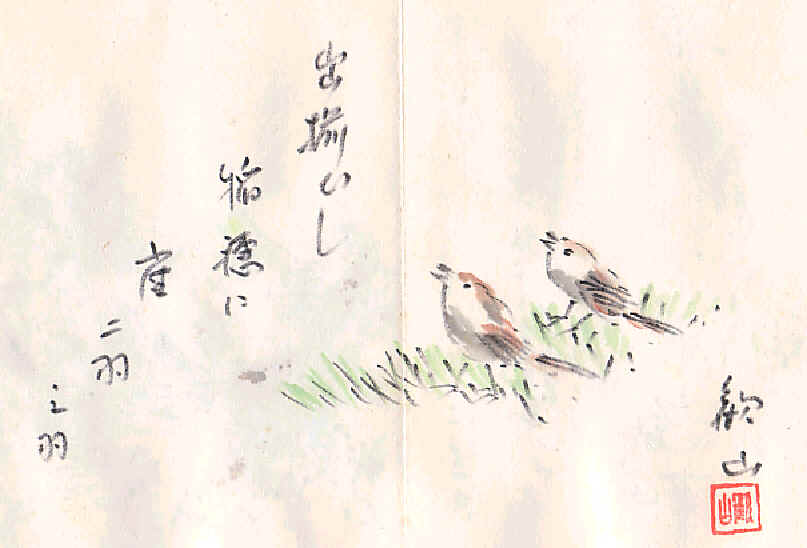 出揃いし
稲穂に
雀
二羽
三羽
山